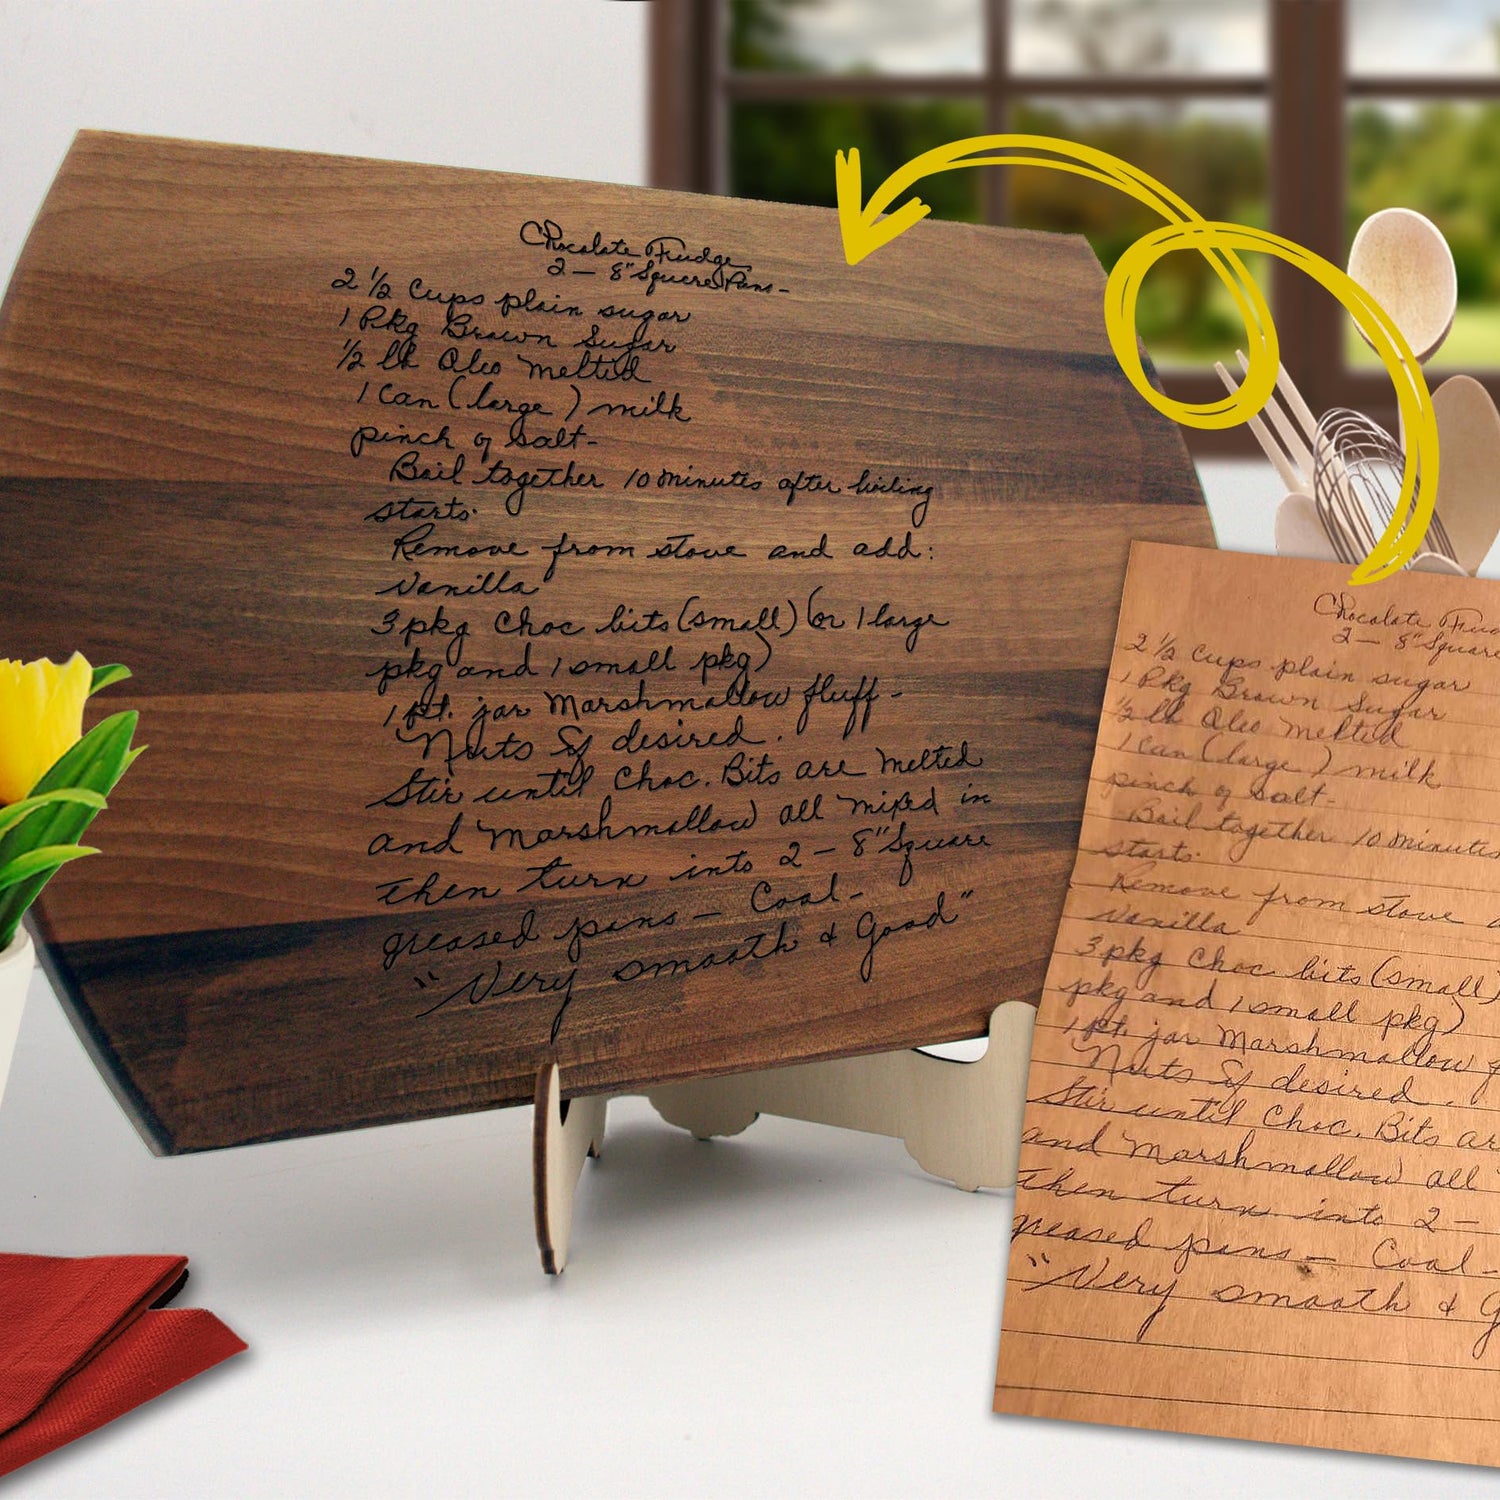 Chocolate Fudge
2 — 8" Square Pans -
2 1/2 Cups plain sugar
1 Pkg Brown Sugar
1/2 lb Oleo melted
1 Can (large) milk
pinch of salt -
Boil together 10 minutes after boiling
starts.
Remove from stove and add:
Vanilla
3 pkg Choc bits (small) (or 1 large
pkg and 1 small pkg)
1 pt. jar Marshmallow fluff -
Nuts if desired.
Stir until Choc. Bits are melted
and Marshmallow all mixed in
then turn into 2 — 8" Square
greased pans — Cool -
"Very smooth & Good"
Chocolate
2 — 8" Square
2 1/2 Cups plain sugar
1 Pkg Brown Sugar
1/2 lb Oleo melted
1 Can (large) milk
pinch of salt -
Boil together 10 minutes
starts.
Remove from stove
Vanilla
3 pkg Choc bits (small)
pkg and 1 small pkg)
1 pt. jar Marshmallow
Nuts if desired.
Stir until Choc. Bits
and Marshmallow all
then turn into 2 —
greased pans — Cool -
"Very smooth &